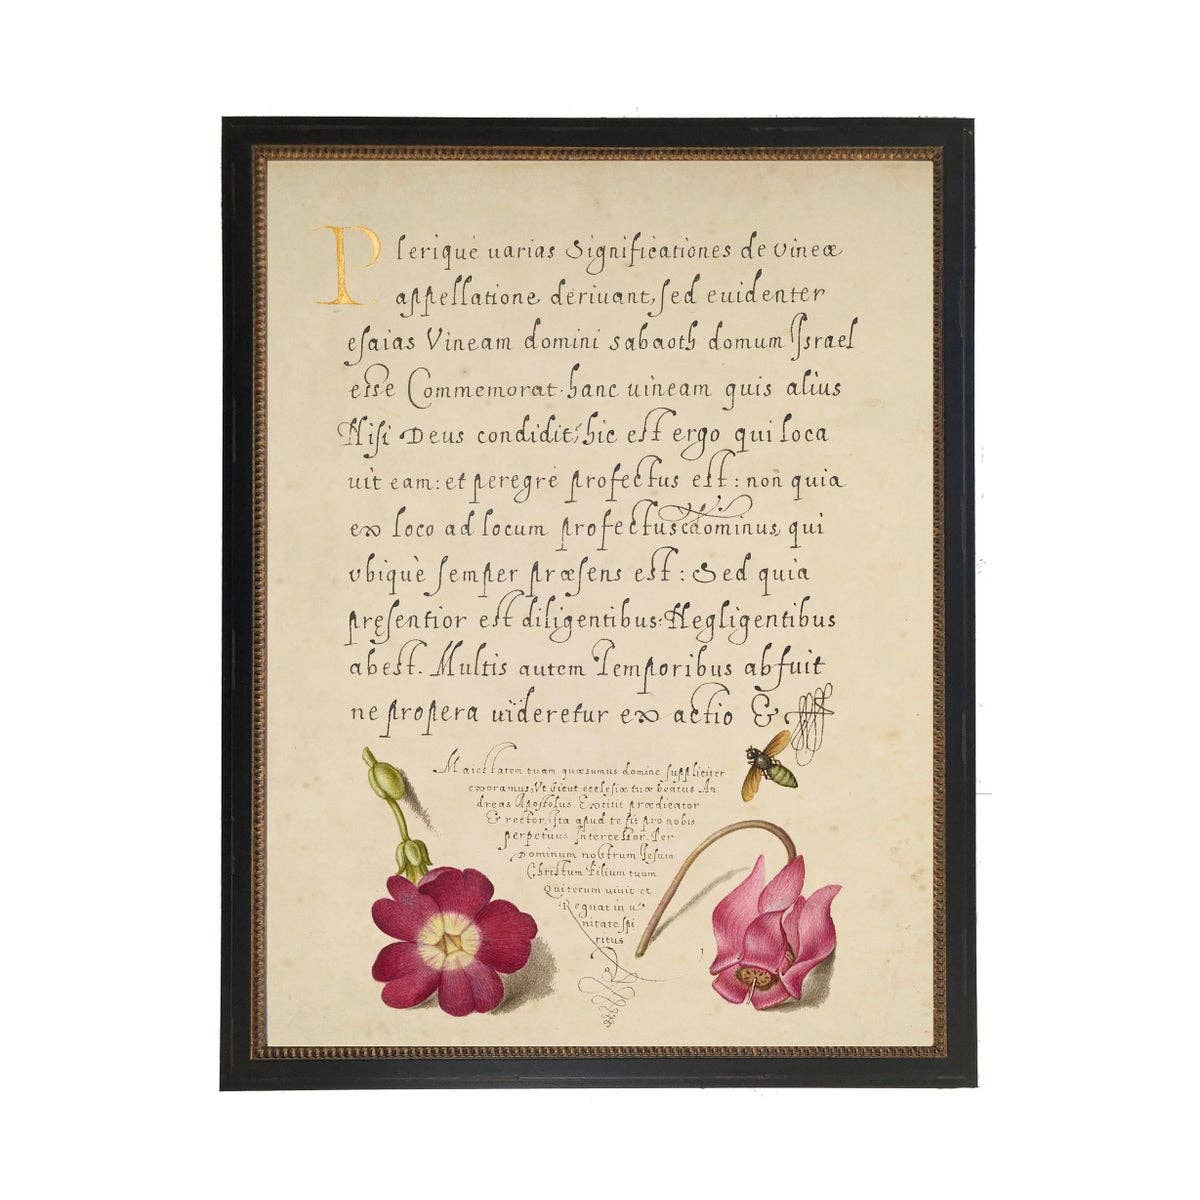 Plerique uarias Significationes de vineæ
appellatione deriuant, sed euidenter
esaias Vineam domini sabaoth domum Israel
esse Commemorat. hanc uineam quis alius
Nisi Deus condidit, hic est ergo qui loca
uit eam: et peregrè profectus est: non quia
ex loco ad locum profectus dominus, qui
vbiquè semper præsens est: Sed quia
pręsentior est diligentibus: Negligentibus
abest. Multis autem Temporibus abfuit
ne propera uïderetur exactio &
Maiestatem tuam quæsumus domine suppliciter
exoramus, Vt sicut ecclesiæ tuæ beatus An
dreas Apostolus Extitit prædicator
& rector, Ita apud te sit pro nobis
perpetuus Intercessor. Per
Dominum nostrum Iesum
Christum Filium tuum
Qui tecum uiuit et
Regnat in u
nitate spi
ritus